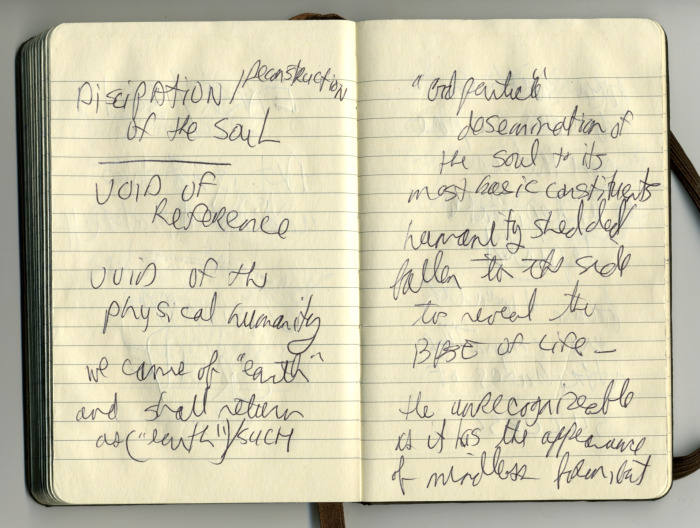 DISCIPATION / Deconstruction
of the SOUL
VOID OF
REFERENCE
VOID of the
physical humanity
we came of "earth"
and shall return
as ("earth")/SUCH
"God particle"
desemination of
the soul to its
most basic constituents
humanity shedded
fallen to the side
to reveal the
BASE OF LIFE -
the unrecognizeable
as it has the appearance
of mindless form, but